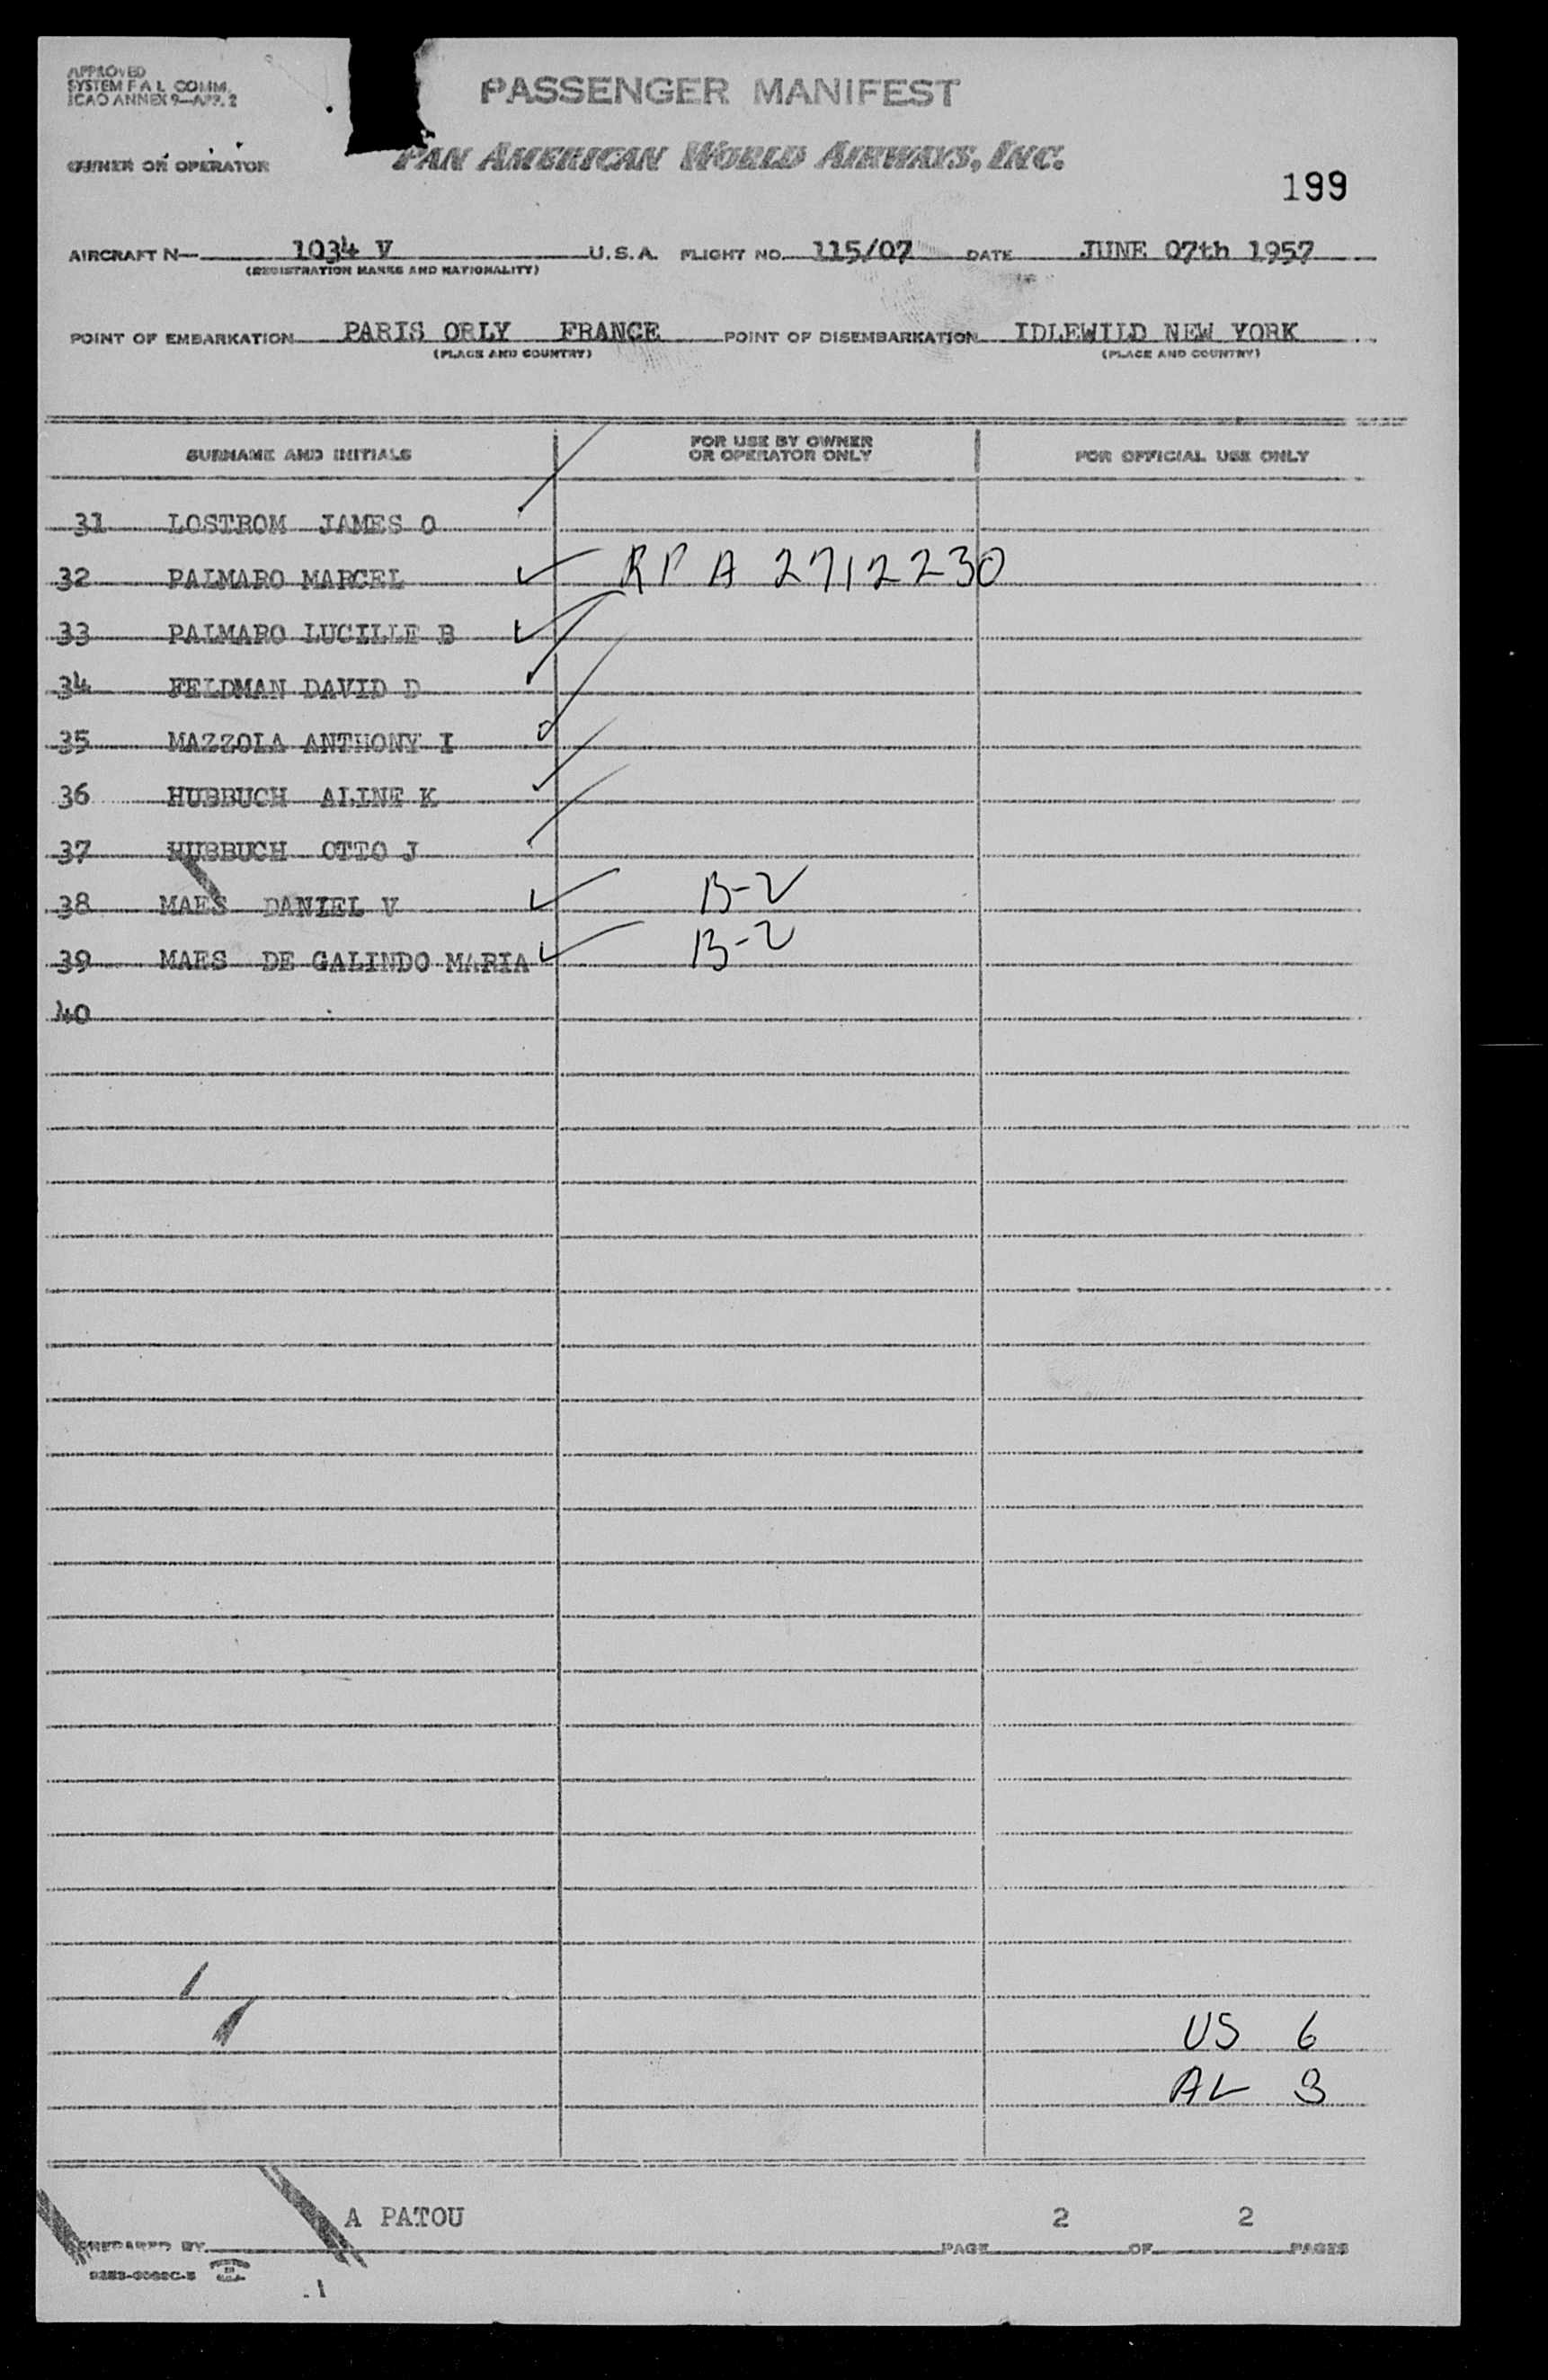 APPROVED
SYSTEM F A L COMM.
ICAO ANNEX 9—APP. 2
PASSENGER MANIFEST
OWNER OR OPERATOR PAN AMERICAN WORLD AIRWAYS, INC.
199
AIRCRAFT N— 1034 V U.S.A. FLIGHT NO. 115/07 DATE JUNE 07th 1957
(REGISTRATION MARKS AND NATIONALITY)
POINT OF EMBARKATION PARIS ORLY FRANCE POINT OF DISEMBARKATION IDLEWILD NEW YORK
(PLACE AND COUNTRY) (PLACE AND COUNTRY)
SURNAME AND INITIALS FOR USE BY OWNER OR OPERATOR ONLY FOR OFFICIAL USE ONLY
31 LOSTROM JAMES O
32 PALMARO MARCEL RP A 2712230
33 PALMARO LUCILLE B
34 FELDMAN DAVID D
35 MAZZOLA ANTHONY I
36 HUBBUCH ALINE K
37 HUBBUCH OTTO J
38 MAES DANIEL V B-2
39 MAES DE GALINDO MARIA B-2
40
US 6
AL 3
A PATOU 2 2
PREPARED BY PAGE OF PAGES